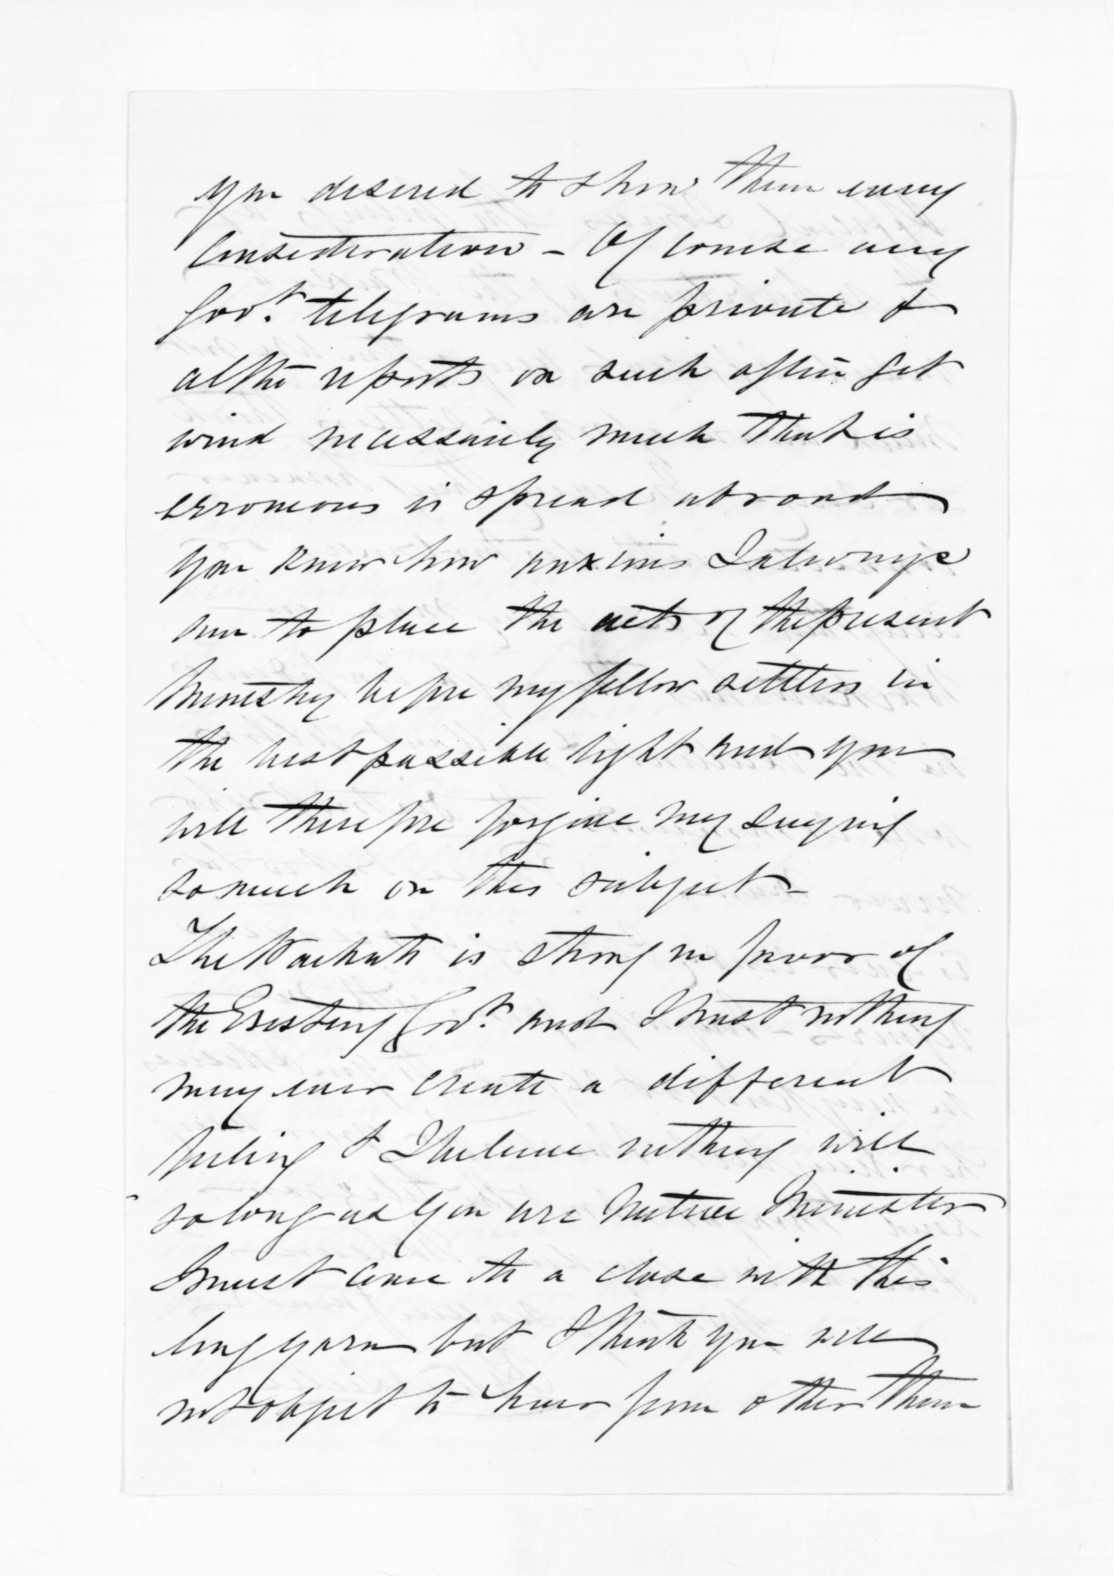 you desired to show them every
Consideration - Of course any
Govt. telegrams are private &
altho reports on such often get
wind necessarily much that is
erroneous is spread abroad
You know how anxious I always
am to place the acts of the present
Ministry before my fellow settlers in
the best possible light and you
will therefore forgive my saying
so much on this subject -
The Waikato is strong in favor of
the Existing Govt. and I trust nothing
may ever create a different
feeling & I believe nothing will
so long as you are Native Minister
I must come to a close with this
long yarn but I think you will
not object to hear from other than